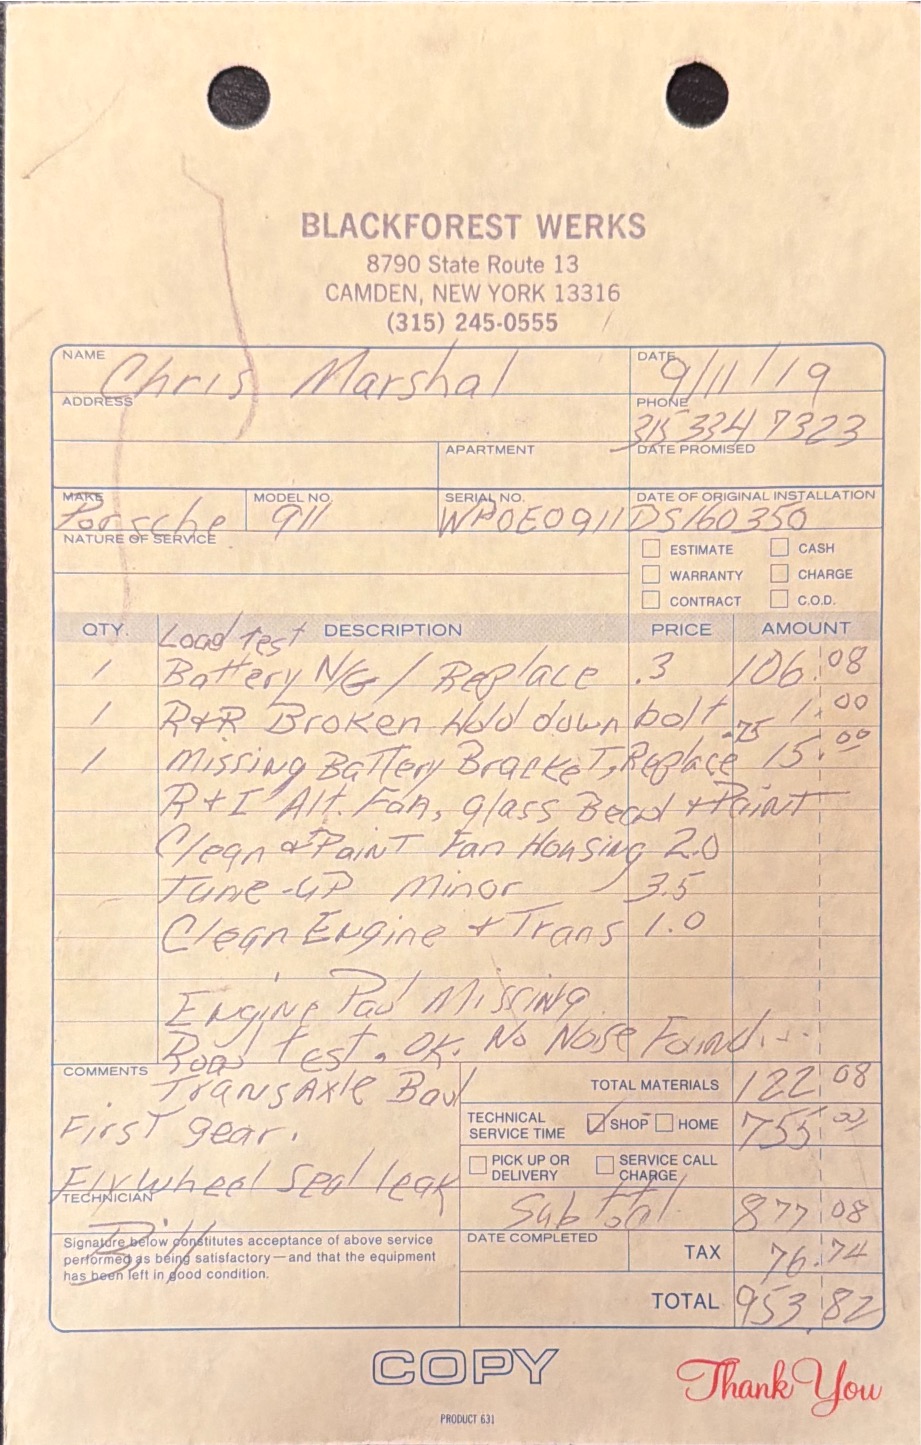 BLACKFOREST WERKS
8790 State Route 13
CAMDEN, NEW YORK 13316
(315) 245-0555
NAME Chris Marshal DATE 9/11/19
ADDRESS PHONE 315 334 7323
APARTMENT DATE PROMISED
MAKE Porsche MODEL NO. 911 SERIAL NO. WP0E0911 DATE OF ORIGINAL INSTALLATION DS160350
NATURE OF SERVICE
ESTIMATE CASH
WARRANTY CHARGE
CONTRACT C.O.D.
QTY. DESCRIPTION PRICE AMOUNT
Load test
1 Battery N/G / Replace .3 106.08
1 R+R Broken Hold down bolt .75 1.00
1 Missing Battery Bracket, Replace 15.00
R+I Alt. Fan, glass Bead + Paint
Clean & Paint Fan Housing 2.0
Tune-UP Minor 3.5
Clean Engine + Trans 1.0
Engine Pad Missing
Road test. OK. No Noise Found...
COMMENTS TransAxle Bad
First gear.
Flywheel Seal leak
TOTAL MATERIALS 122.08
TECHNICAL SERVICE TIME SHOP HOME 755.00
PICK UP OR DELIVERY SERVICE CALL CHARGE
TECHNICIAN Bill
Sub total 877.08
Signature below constitutes acceptance of above service
performed as being satisfactory—and that the equipment
has been left in good condition.
DATE COMPLETED TAX 76.74
TOTAL 953.82
COPY
Thank You
PRODUCT 631